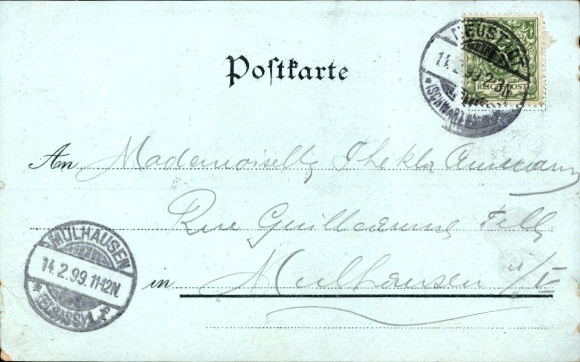 NEUSTADT
14.2.99.2-3N.
(SCHWARZWALD)
REICHSPOST
Postkarte
An Mademoiselle Thekla Ammann
Rue Guillaume Tell
in Mulhausen i/E
MÜLHAUSEN
14.2.99.11-12N.
*(ELSASS)1.*